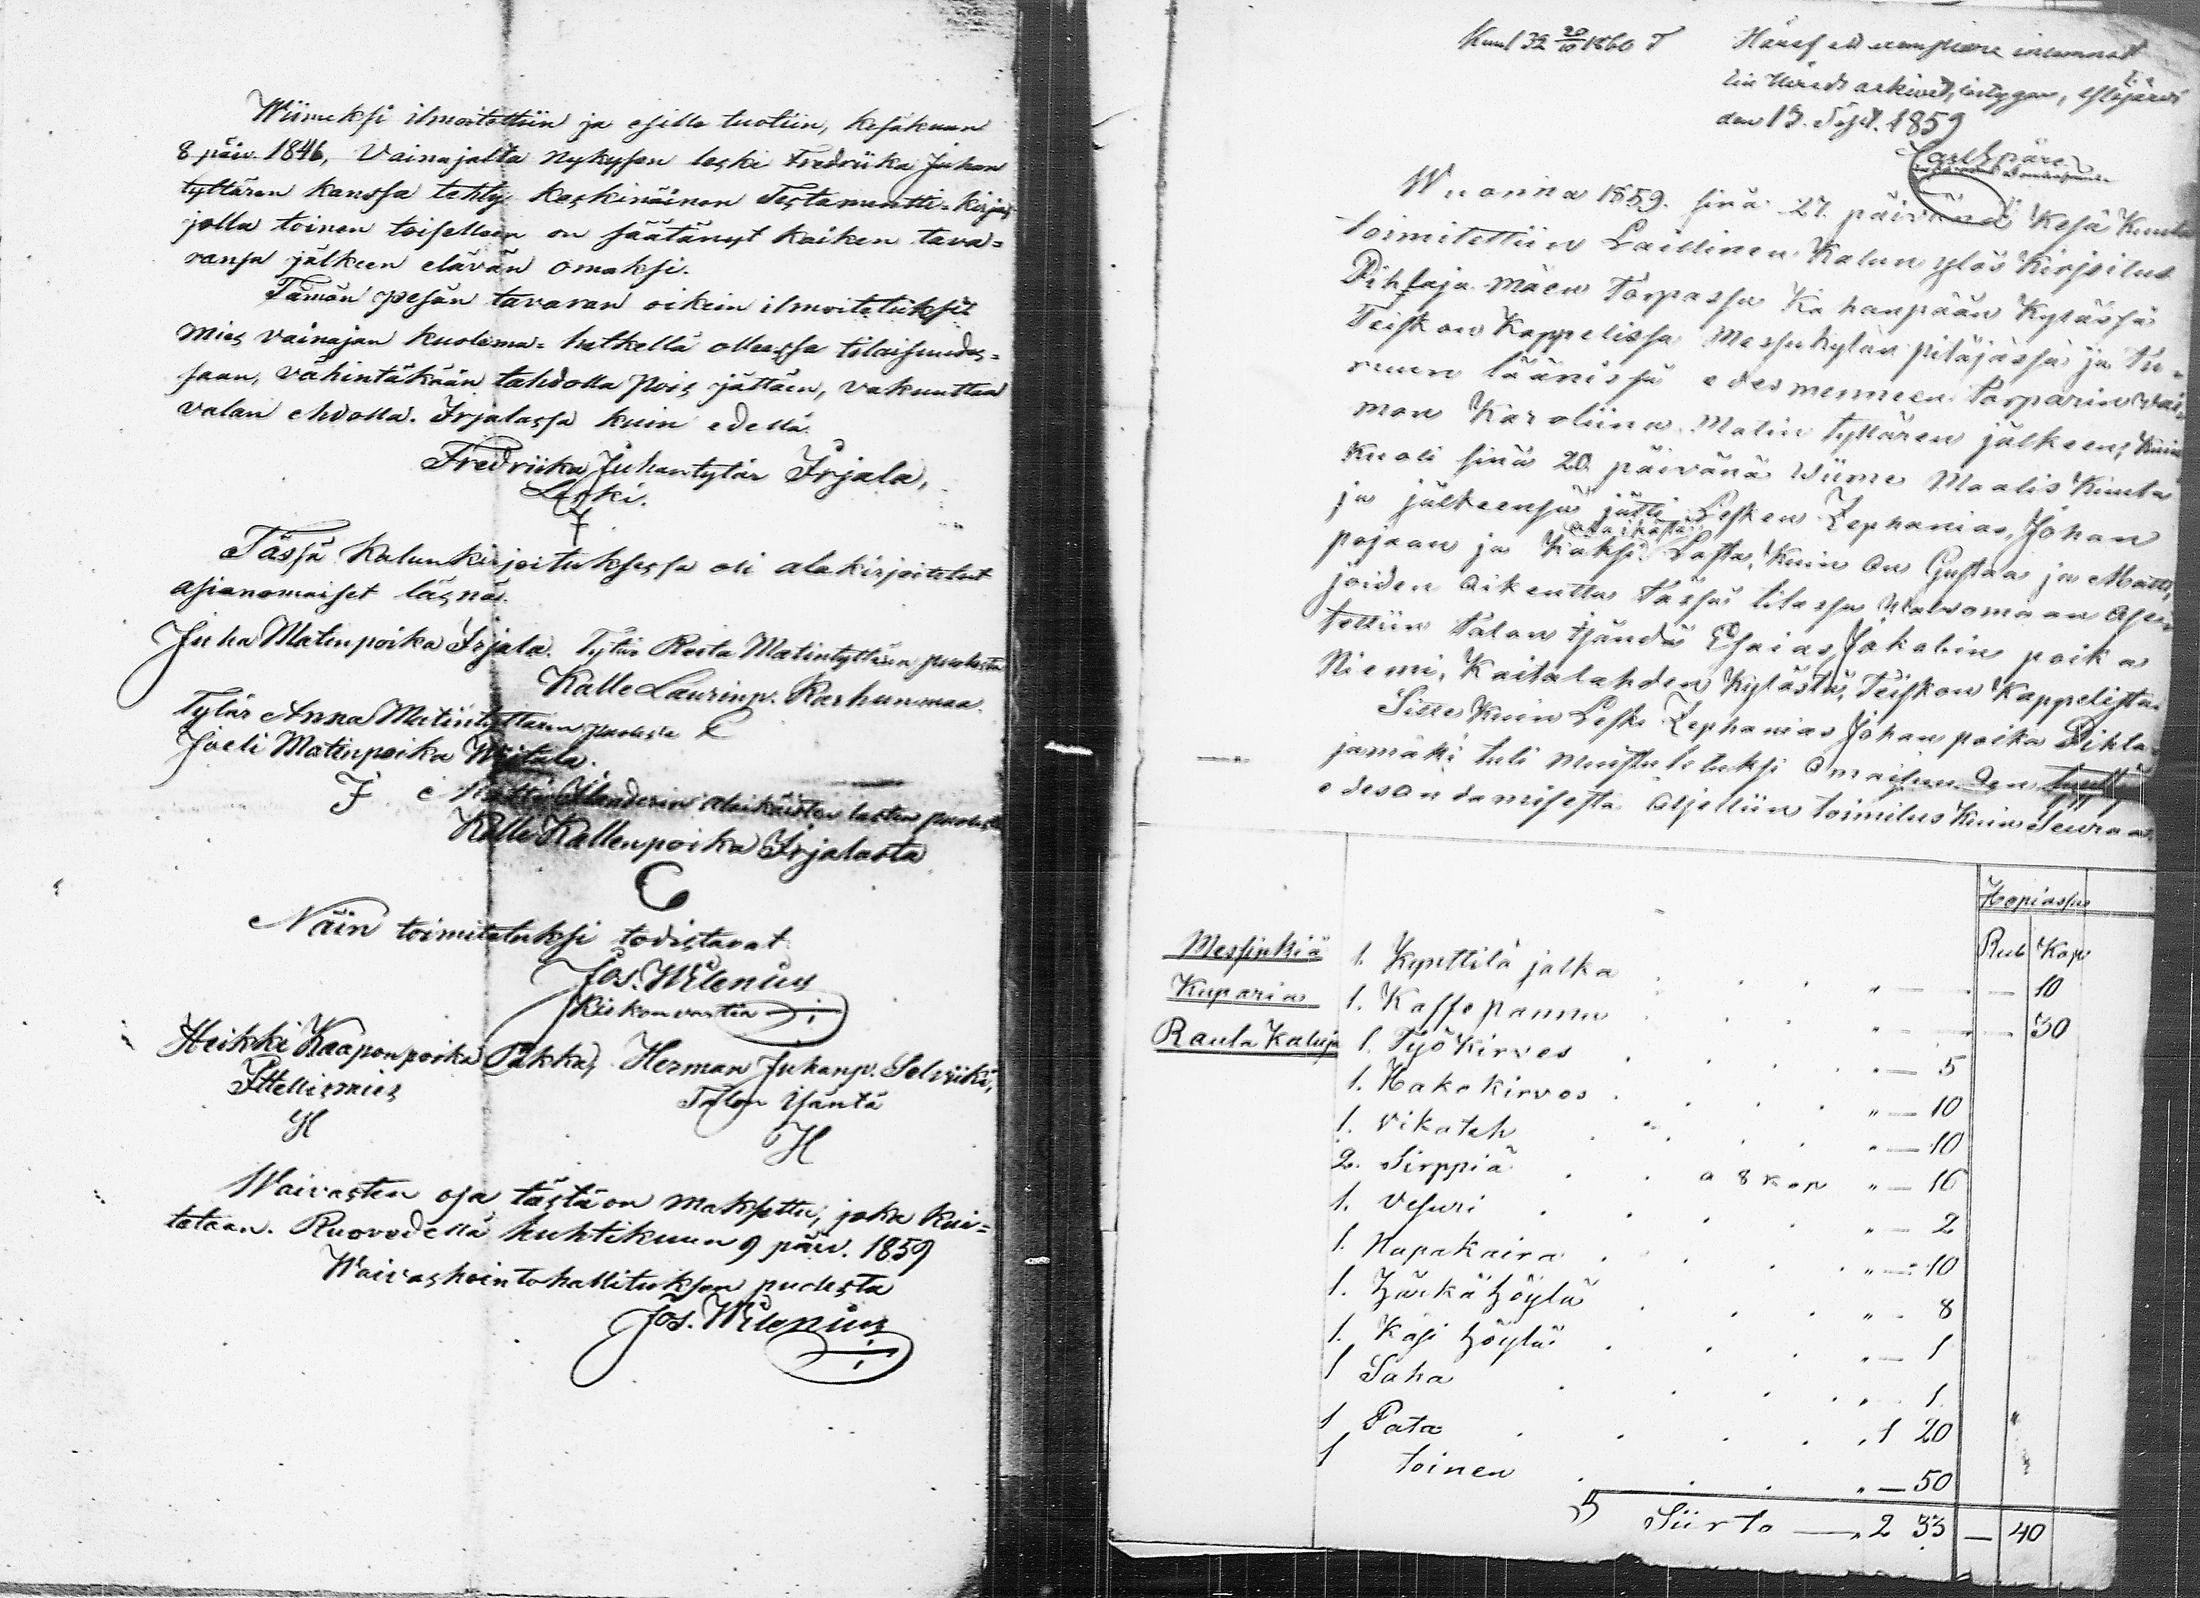 Wiimeksi ilmoitettiin ja esille tuotiin, kesäkuun
8 päiv. 1846, Vainajalta nykysen leski Fredriika Juhan
tyttären kanssa tehty keskinäinen Testamentti-kirja,
jolla toinen toisellen on säätänyt kaiken tava=
ransa jälkeen elävän omaksi.
Tämän pesän tavaran oikein ilmoitetuksi
mies vainajan kuolema-hetkellä ollessa tilaisuudes=
saan, vähintäkään tahdolla pois jättäen, vakuuttaa
valan ehdolla. Irjalassa kuin edellä.
Fredriika Juhantytär Irjala,
Leski.
Tässä kalunkirjoituksessa oli alakirjoitetut
asianomaiset läsnä.
Juha Matinpoika Irjala. Tytär Reeta Matintyttären puolesta
Kalle Laurinp. Karhunmaa.
Tytär Anna Matintyttären puolesta
Joeli Matinpoika
alaikäisten lasten puolesta
Kalle Kallenpoika Irjalasta
Näin toimitetuksi todistavat
Jos. Wilenius
Kiskonvartia
Heikki Kaaponpoika Pukka, Herman Juhanp. Selviiki,
Ittellismies Talon isäntä
H H
Waivasten osa tästä on maksettu, joka kui=
tataan. Ruovedellä huhtikuun 9 päiv. 1859
Waivashointohallituksen puolesta
Jos. Wilenius
32 20/10 1860
Häraf ett exemplar inlemnadt
till Härads arkivet, intygar,
den 13. Sept. 1859
Carl Spåre
Wuonna 1859. sinä 27. päivänä Kesä Kuuta
toimitettiin Laillinen Kalun ylös Kirjoitus
Pihlaja mäen Torpassa Kahanpään Kylässä
Teiskon Kappelissa Messukylän pitäjässä ja Tu=
ruun läänissä edesmenneen Torparin vai
mon Karoliina Matin tyttären jälkeen, Kuin
Kuoli sinä 20. päivänä Wiime Maalis Kuuta
ja jälkeensä jätti Lesken Zephanias, Johan
pojaan ja Kaksi alaikästä Lasta, Kuin On Gustaa ja Matti,
joiden oikeutta tässä tilassa walvomaan asei
tettiin Talon Isändä Esaias Jakobin poika
Niemi, Kaitalahden Kylästä, Teiskon Kappelista.
Sitte Kuin Leski Zephanias Johan poika Pihla
jamäki tuli muistutetuksi Omaisuuden
edesandamisesta aljettiin toimitus kuin Seuraa
Hopiassa
Rub Kop
Messinkiä 1. Kynttilä jalka " — — 10
Kuparia 1. Kaffepannu " — — 30
Rauta Kaluja 1. Työ Kirves " — 5
1. Hako kirves " — 10
1. Vikateh " — 10
2. Sirppiä a 8 kop " — 16
1. Vesuri " — 2
1. Napakaira " — 10
1. Härkä höylä " - 8
1. Käsi höylä " — 1
1 Saha " 1
1 Pata " 1 20
1 toinen " — 50
Siirto — " 2 33 — 40